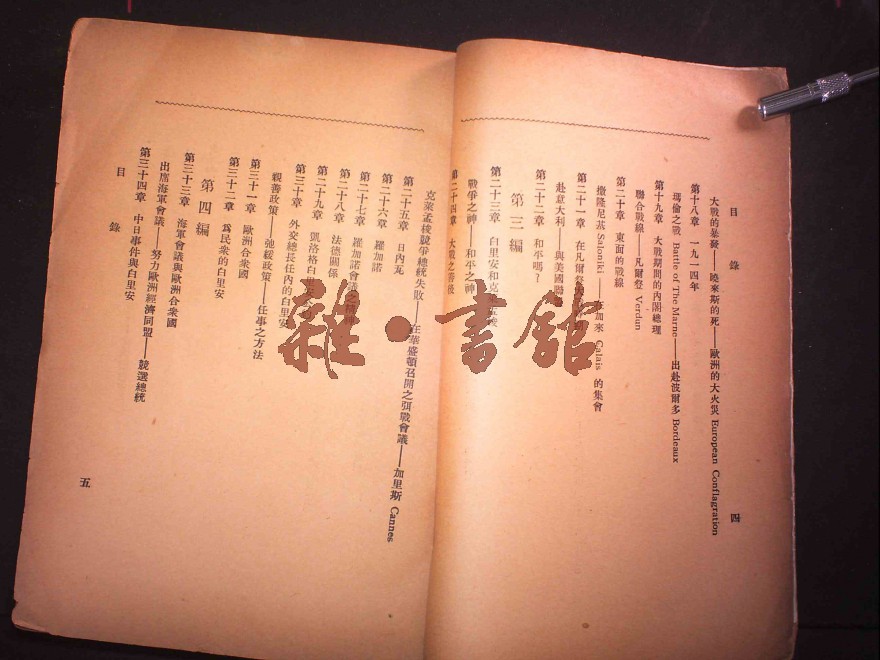 目錄
四
大戰的暴發——曉來斯的死——歐洲的大火災 European Conflagration
第十八章 一九一四年
瑪倫之戰 Battle of The Marne——出赴波爾多 Bordeaux
第十九章 大戰期間的內閣總理
聯合戰線——凡爾登 Verdun
第二十章 東面的戰線
撒隆尼基 Saloniki —— 加來 Calais 的集會
第二十一章 在凡爾登
赴意大利——與美國
第二十二章 和平嗎？
第三編
第二十三章 白里安和克
戰爭之神——和平之神
第二十四章 大戰之善後
克萊孟梭競爭總統失敗——在華盛頓召開之弭戰會議——加里斯 Cannes
第二十五章 日內瓦
第二十六章 羅加諾
第二十七章 羅加諾會議之
第二十八章 法德關係
第二十九章 凱洛格白里安
第三十章 外交總長任內的白里安
親善政策——弛緩政策——任事之方法
第三十一章 歐洲合衆國
第三十二章 爲民衆的白里安
第四編
第三十三章 海軍會議與歐洲合衆國
出席海軍會議——努力歐洲經濟同盟——競選總統
第三十四章 中日事件與白里安
目錄
五
雜·書館